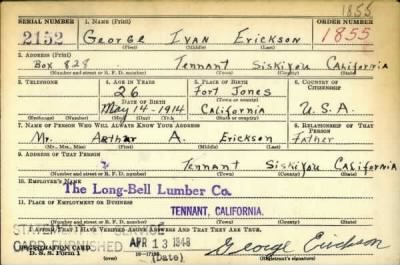 1855
SERIAL NUMBER 1. NAME (Print) ORDER NUMBER
2152 George Ivan Erickson 1855
(First) (Middle) (Last)
2. ADDRESS (Print)
Box 828 Tennant Siskiyou California
(Number and street or R. F. D. number) (Town) (County) (State)
3. TELEPHONE 4. AGE IN YEARS 5. PLACE OF BIRTH 6. COUNTRY OF CITIZENSHIP
26 Fort Jones
DATE OF BIRTH (Town or county)
May-14-1914 California U.S.A.
(Exchange) (Number) (Mo.) (Day) (Yr.) (State or country)
7. NAME OF PERSON WHO WILL ALWAYS KNOW YOUR ADDRESS 8. RELATIONSHIP OF THAT PERSON
Mr. Arthur A. Erickson Father
(Mr., Mrs., Miss) (First) (Middle) (Last)
9. ADDRESS OF THAT PERSON
Tennant Siskiyou California
(Number and street or R. F. D. number) (Town) (County) (State)
10. EMPLOYER'S NAME
The Long-Bell Lumber Co.
11. PLACE OF EMPLOYMENT OR BUSINESS
TENNANT, CALIFORNIA.
(Number and street or R. F. D. number) (Town) (County) (State)
I AFFIRM THAT I HAVE VERIFIED ABOVE ANSWERS AND THAT THEY ARE TRUE.
STATEMENT SERVICE
CARD FURNISHED APR 13 1948 George Erickson
REGISTRATION CARD
D. S. S. Form 1 (Date) (Registrant's signature)